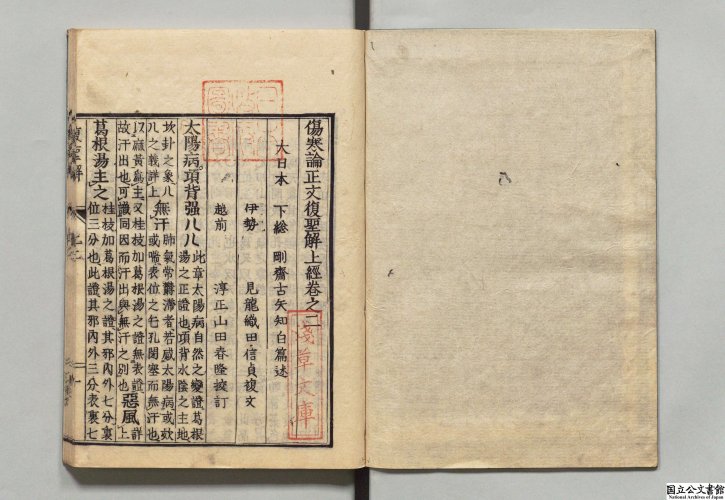 傷寒論正文復聖解上經卷之二
大日本 下總 剛齋古矢知白篇述
伊勢 見龍織田信貞複文
越前 淳正山田春隆挍訂
太陽病項背强几几此章太陽病自然之變證葛根
湯之正證也項背水陰之主地
坎卦之象几
几之義詳上無汗肺氣常欝滯者若感太陽病或欬
或喘表位之七孔閉塞而無汗也
以麻黃爲主又桂枝加葛根湯之證無表證
故汗出也可識同因而汗出與無汗之別也惡風詳
上
葛根湯主之桂枝加葛根湯之證其邪內外七分裏
位三分也此證其邪內外三分表裏七
復聖解
淺草文庫
国立公文書館
National Archives of Japan